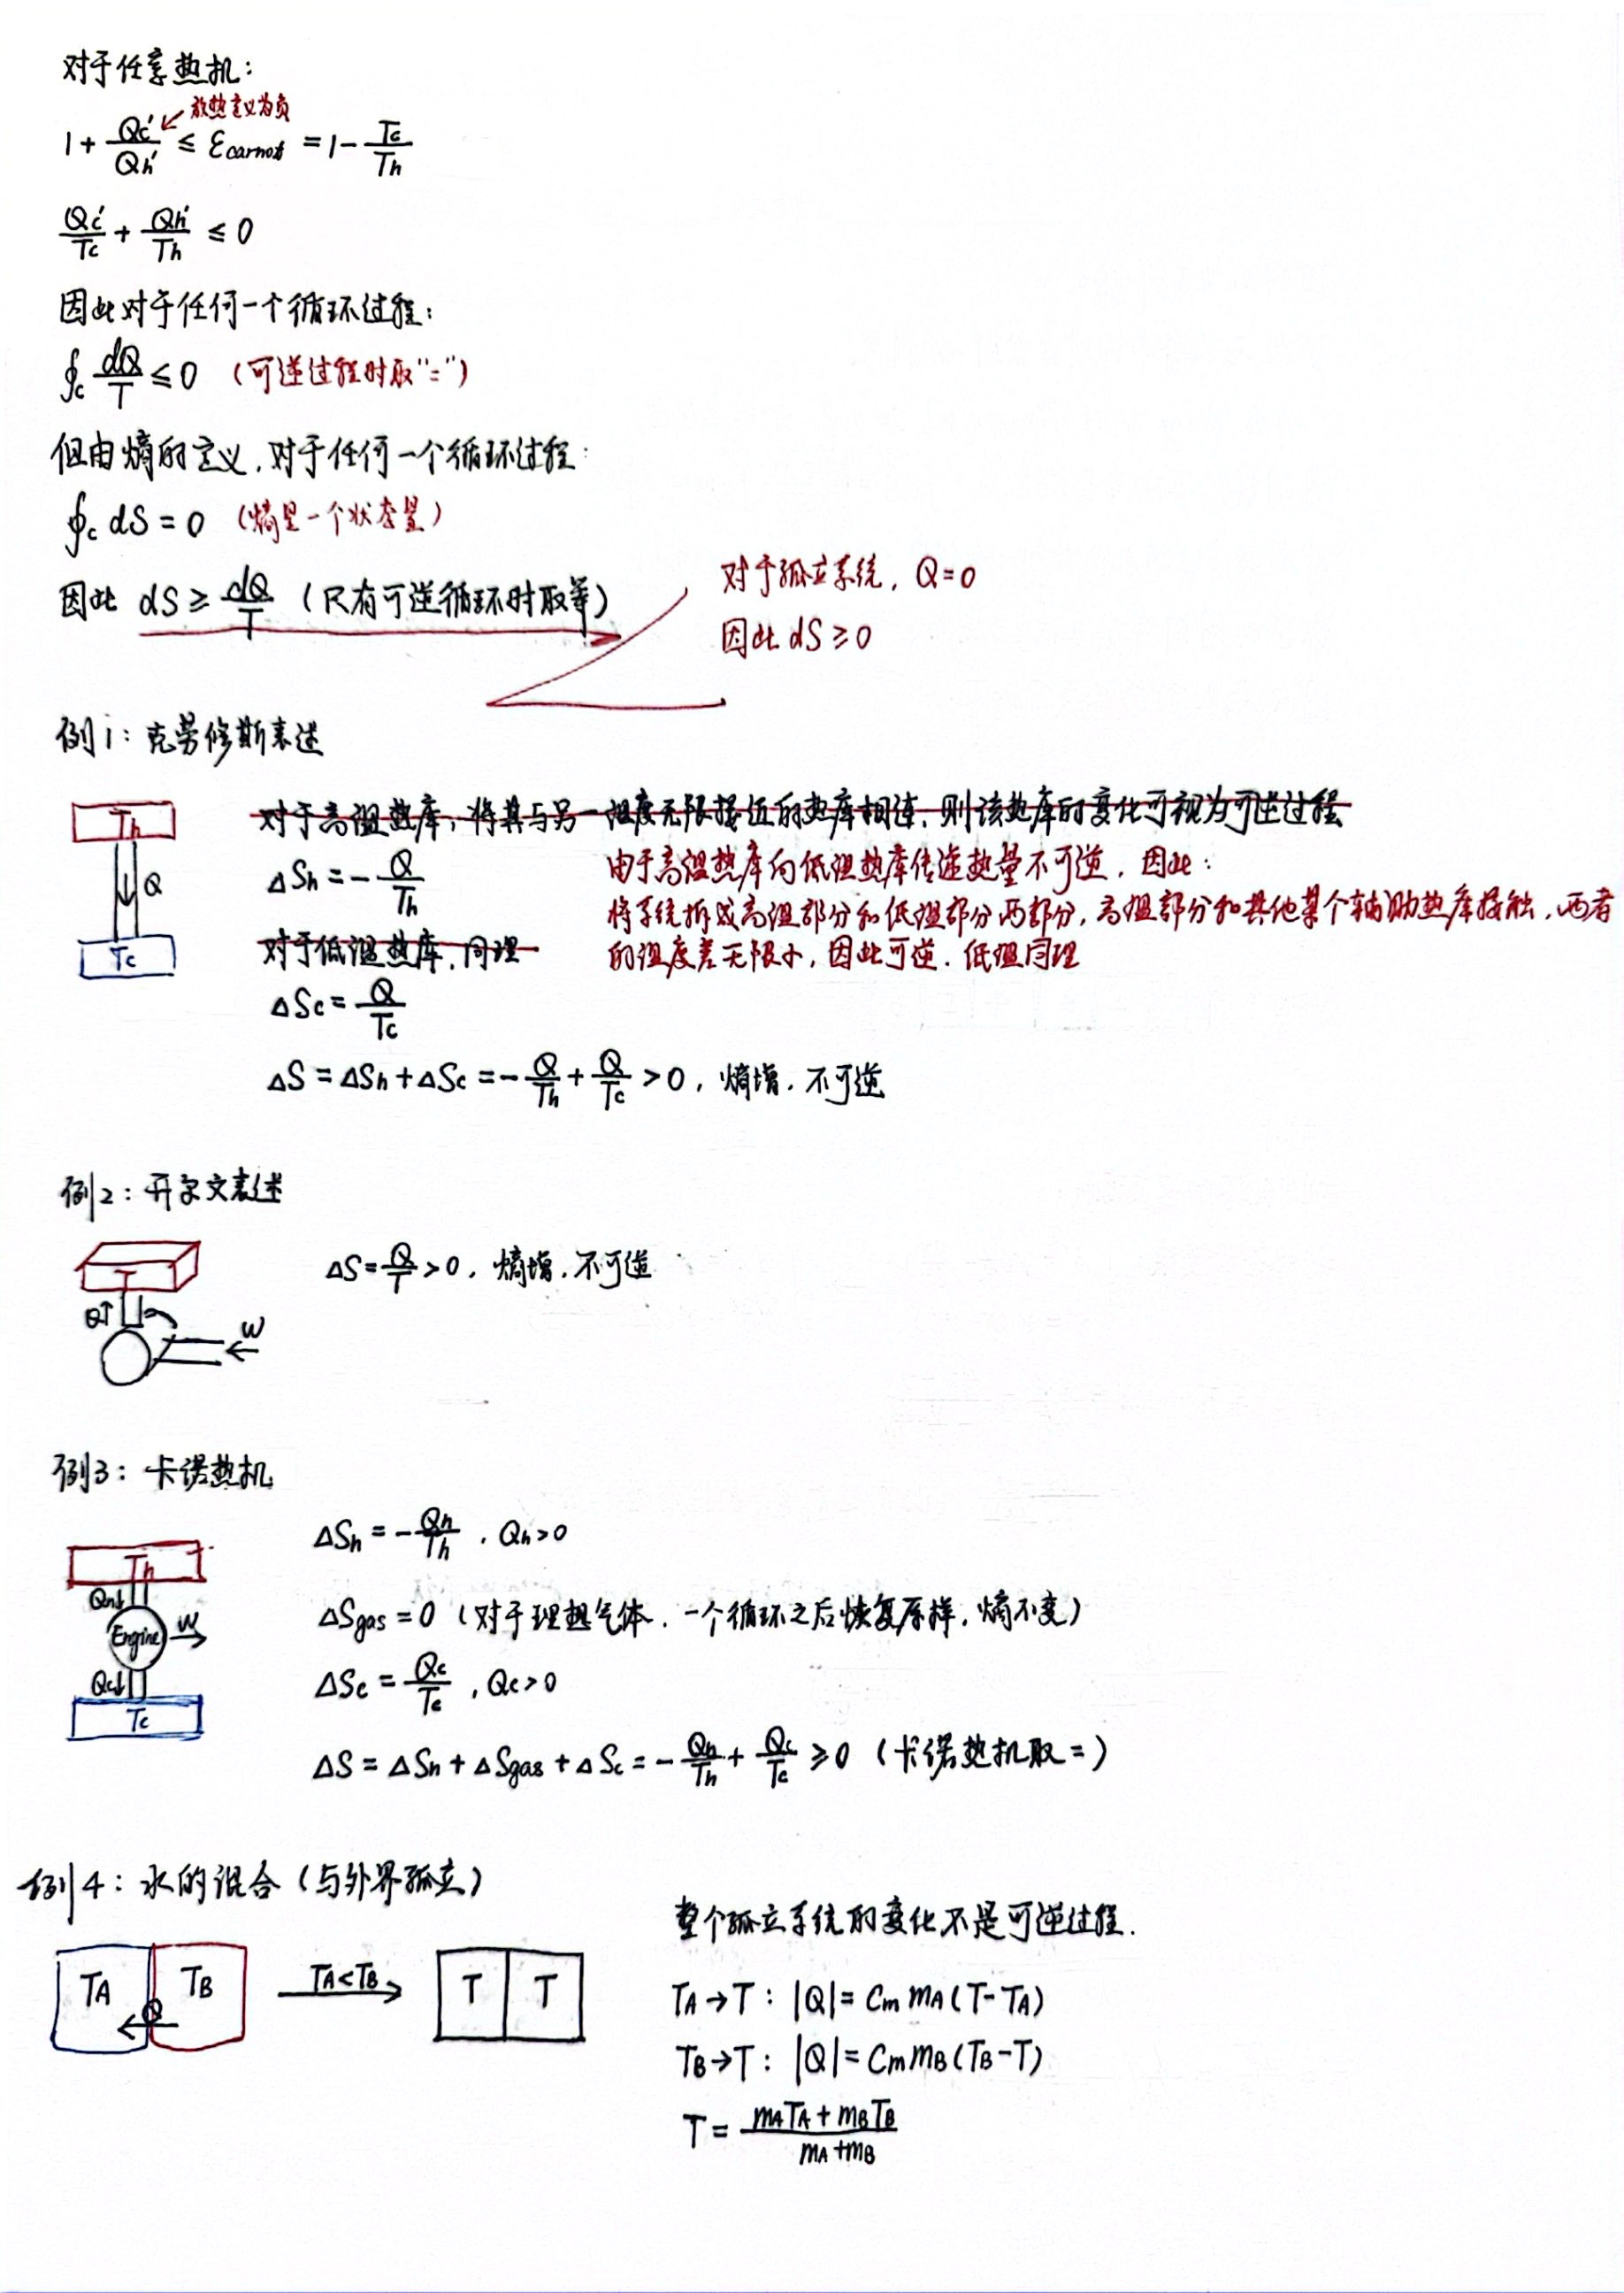 对于任意热机:
1 + Qc'/Qh' ≤ εcarnot = 1 - Tc/Th
放热定义为负
Qc'/Tc + Qh'/Th ≤ 0
因此对于任何一个循环过程:
∮c dQ/T ≤ 0 (可逆过程时取"=")
但由熵的定义,对于任何一个循环过程:
∮c dS = 0 (熵是一个状态量)
因此 dS ≥ dQ/T (只有可逆循环时取等)
对于孤立系统, Q=0
因此 dS ≥ 0
例1: 克劳修斯表述
Th
Q
Tc
对于高温热库,将其与另一温度无限接近的热库相连,则该热库的变化可视为可逆过程
ΔSh = - Q/Th
由于高温热库向低温热库传递热量不可逆,因此:
将系统拆成高温部分和低温部分两部分,高温部分和其他某个辅助热库接触,两者
的温度差无限小,因此可逆.低温同理
对于低温热库,同理
ΔSc = Q/Tc
ΔS = ΔSh + ΔSc = - Q/Th + Q/Tc > 0, 熵增,不可逆
例2: 开尔文表述
T
Q↑
W
ΔS = Q/T > 0, 熵增,不可逆
例3: 卡诺热机
Th
Qh↓
Engine
W
Qc↓
Tc
ΔSh = - Qh/Th , Qh>0
ΔSgas = 0 (对于理想气体,一个循环之后恢复原样,熵不变)
ΔSc = Qc/Tc , Qc>0
ΔS = ΔSh + ΔSgas + ΔSc = - Qh/Th + Qc/Tc ≥ 0 (卡诺热机取=)
例4: 水的混合(与外界孤立)
TA
TB
Q
TA<TB
T
T
整个孤立系统的变化不是可逆过程.
TA→T: |Q| = Cm mA(T-TA)
TB→T: |Q| = Cm mB(TB-T)
T = (mATA + mBTB)/(mA+mB)